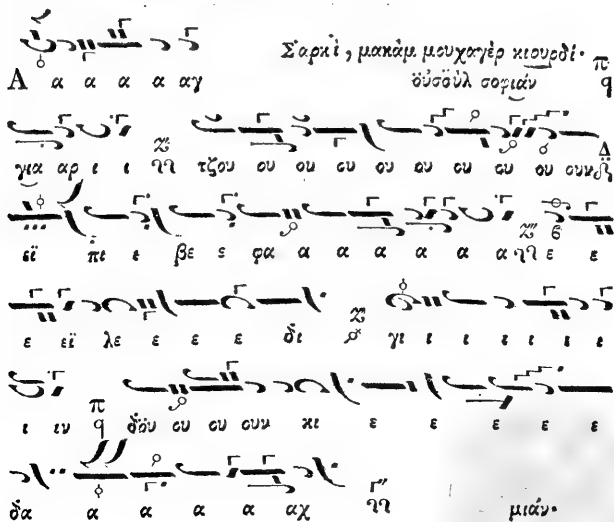 Σαρκὶ, μακὰμ μουχαγὲρ κιουρδί· π
οὐσοὺλ σοφιάν q
Α α α α α αγ
για αρ ι ι τζου ου ου ου ου ου ου ου ου ουκ
εϊ πι ι βε ε φα α α α α α α α ε ε
ε εϊ λε ε ε ε δι γι ι ι ι ι ι ι
ι ιν π q δου ου ου ουν κι ε ε ε ε ε
δα α α α α α αχ μιάν·